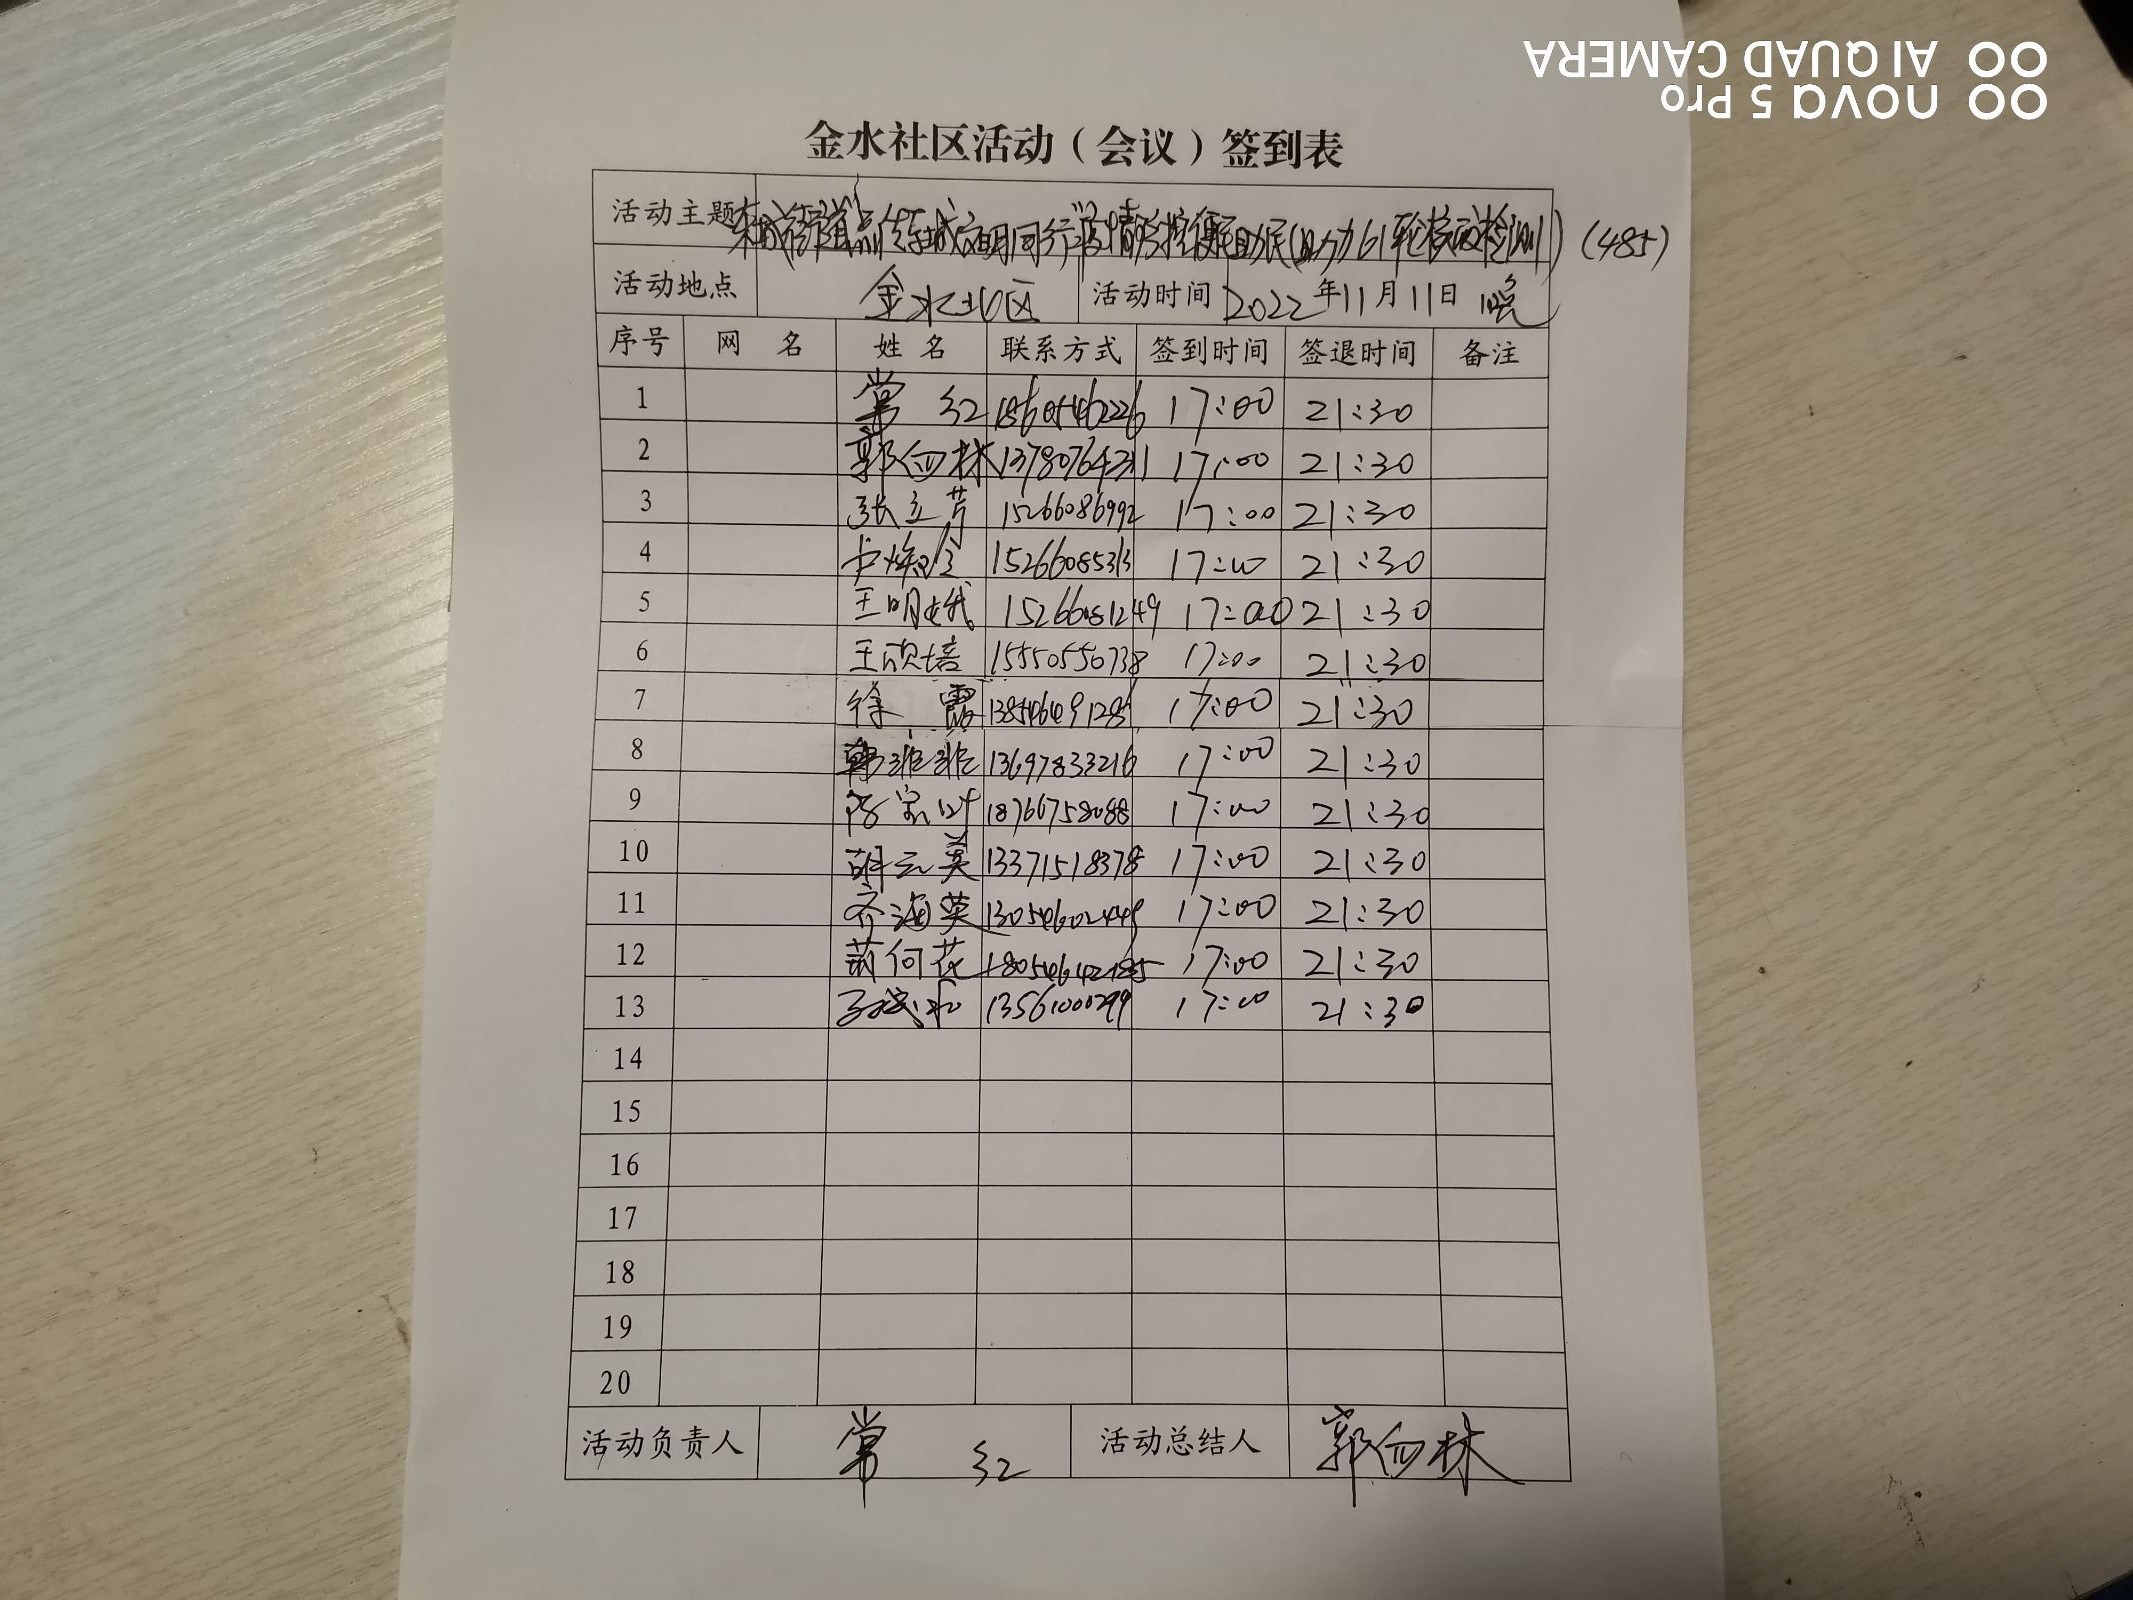 AI QUAD CAMERA
nova 5 Pro
金水社区活动（会议）签到表
活动主题 东城街道点传东城文明同行"疫情防控便民助民(助力61轮核酸检测)(485)
活动地点 金水北区 活动时间 2022年11月11日 晚
序号 网 名 姓 名 联系方式 签到时间 签退时间 备注
1 常 红 17:00 21:30
2 郭向林 13780764311 17:00 21:30
3 张立芳 15266086992 17:00 21:30
4 15266085313 17:00 21:30
5 王明娥 15266081249 17:00 21:30
6 王颂培 15550550738 17:00 21:30
7 徐 霞 13854649128 17:00 21:30
8 韩菲菲 13697833216 17:00 21:30
9 18766758088 17:00 21:30
10 胡云英 13371518378 17:00 21:30
11 齐海英 13054602449 17:00 21:30
12 荷花 17:00 21:30
13 13561000299 17:00 21:30
14
15
16
17
18
19
20
活动负责人 常 红 活动总结人 郭向林